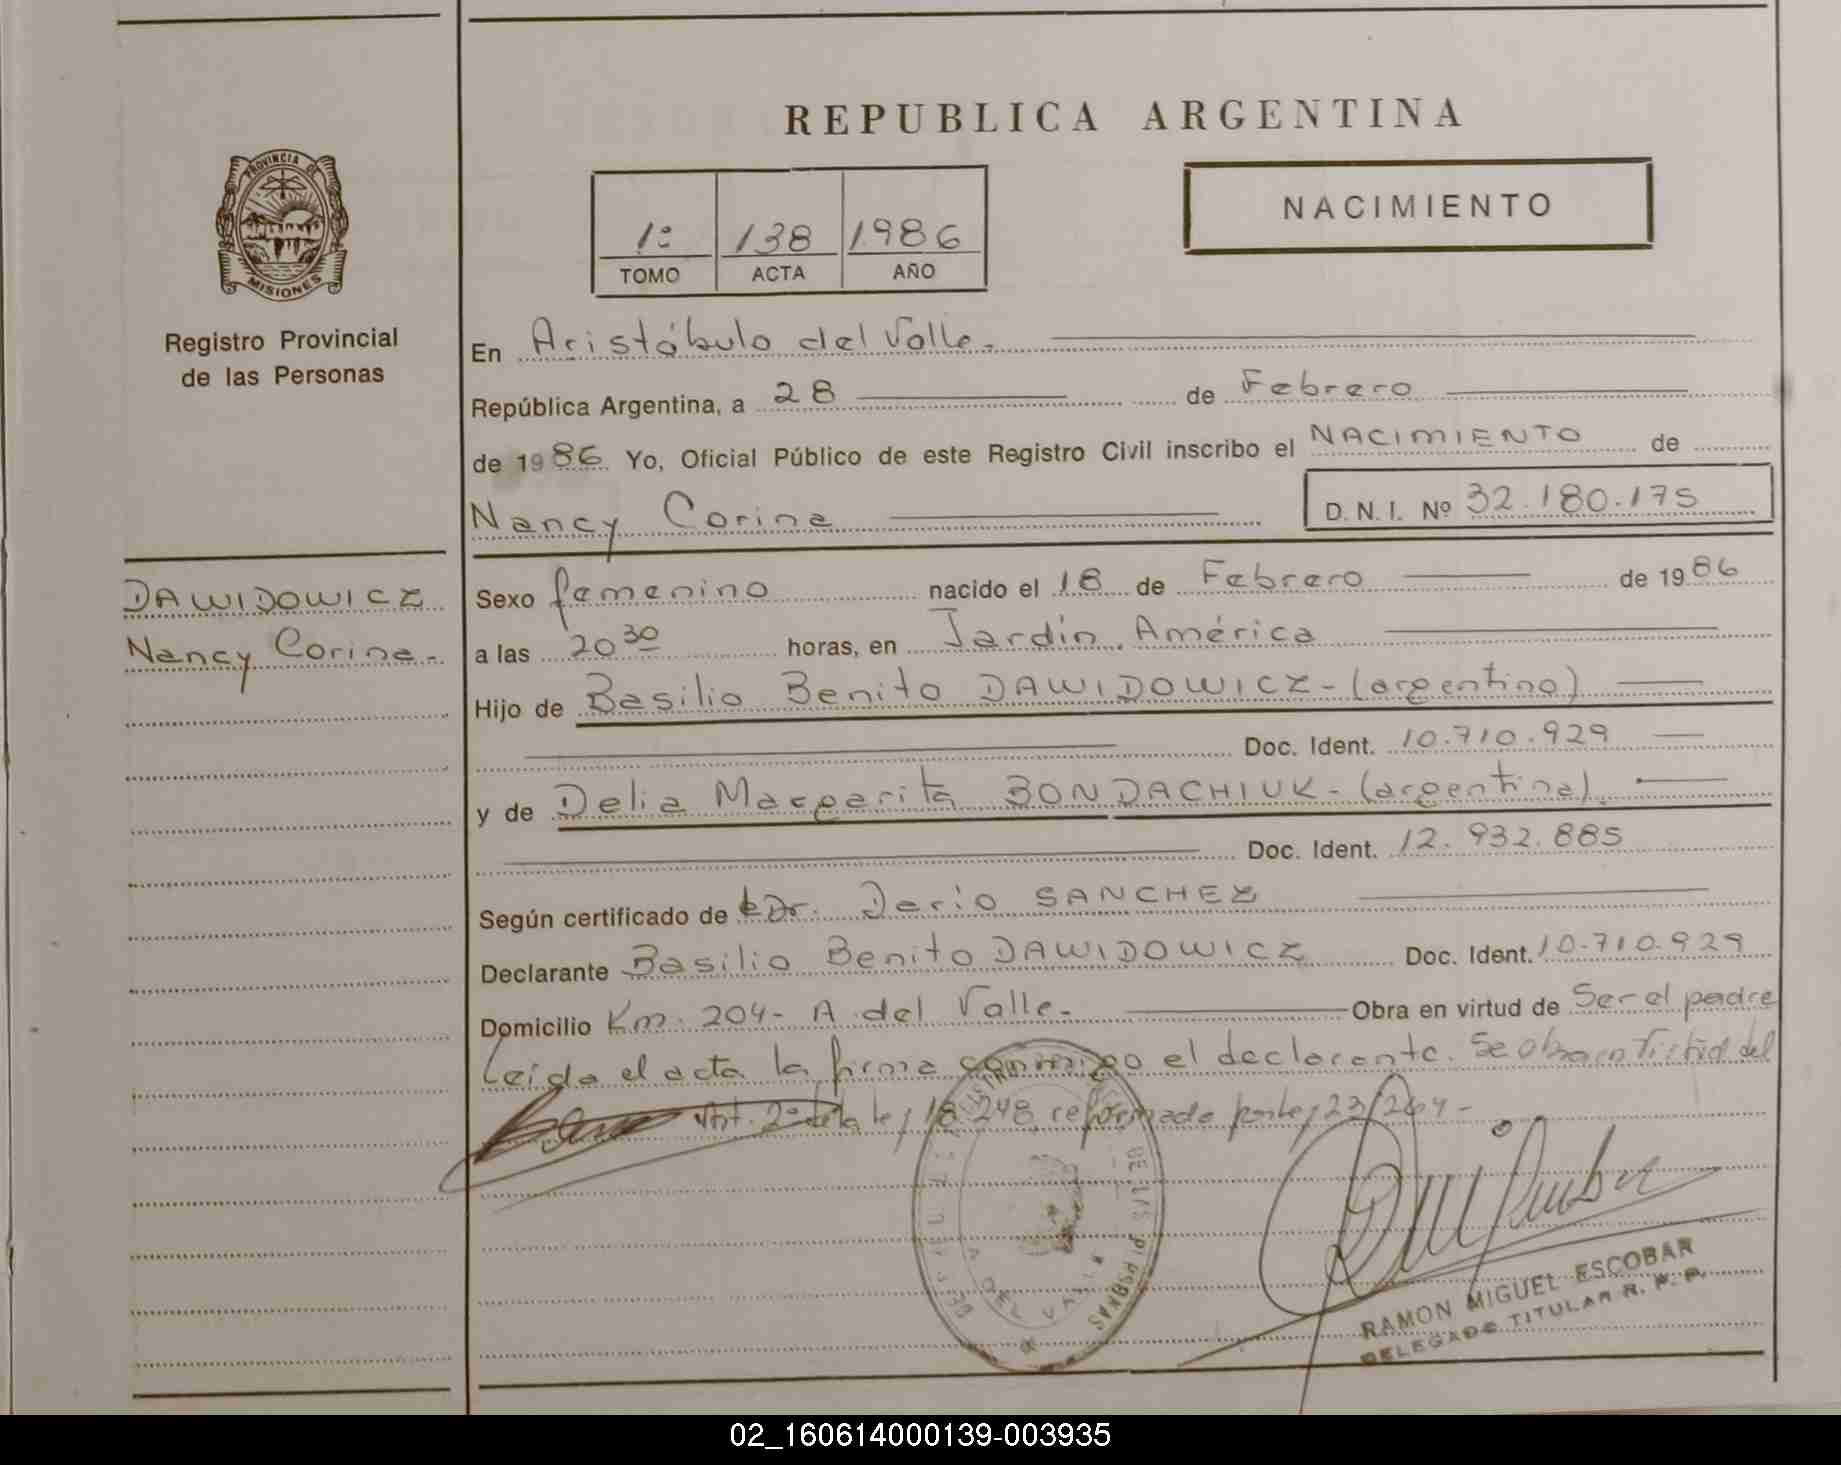 REPUBLICA ARGENTINA
PROVINCIA DE
MISIONES
Registro Provincial
de las Personas
1º 138 1986
TOMO ACTA AÑO
NACIMIENTO
En Aristóbulo del Valle.
República Argentina, a 28 de Febrero
de 1986 Yo, Oficial Público de este Registro Civil inscribo el NACIMIENTO de
Nancy Corina D.N.I. Nº 32.180.175
DAWIDOWICZ
Nancy Corina.-
Sexo femenino nacido el 18 de Febrero de 1986
a las 20 30 horas, en Jardín América
Hijo de Basilio Benito DAWIDOWICZ-(argentino)
Doc. Ident. 10.710.929
y de Delia Margarita BONDACHIUK-(argentina).
Doc. Ident. 12.932.885
Según certificado de Dr. Dario SANCHEZ
Declarante Basilio Benito DAWIDOWICZ Doc. Ident. 10.710.929
Domicilio Km. 204- A. del Valle.- Obra en virtud de Ser el padre
Leida el acta la firma conmigo el declarante. Se obra en virtud del
Art. 2º de la ley 18.248 reformada por ley 23/264-
DE LAS PERSONAS
A DEL VALLE
RAMON MIGUEL ESCOBAR
DELEGADO TITULAR R. P. P.
02_160614000139-003935